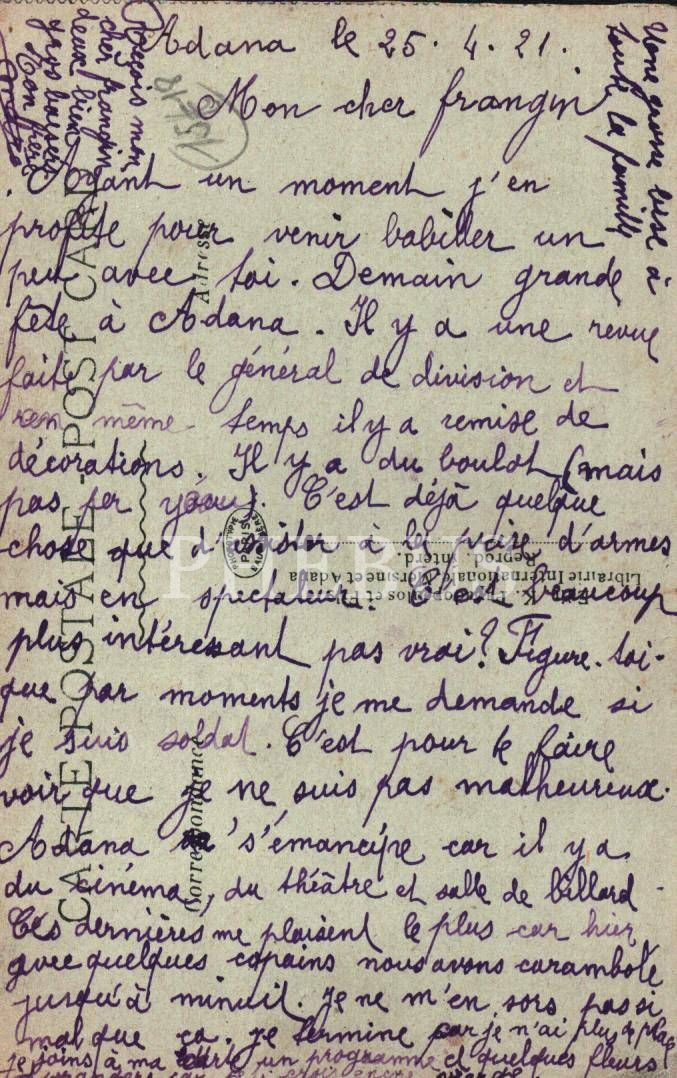 Adana le 25.4.21.
Mon cher frangin
Ayant un moment j'en
profite pour venir babiller un
peu avec toi. Demain grande
fête à Adana. Il y a une revue
faite par le général de division et
en même temps il y a remise de
décorations. Il y a du boulot (mais
pas pour C'est déjà quelque
chose que d'assister à la prise d'armes
mais en spectateur. C'est beaucoup
plus intéressant pas vrai? Figure-toi
que par moments je me demande si
je suis soldat. C'est pour te faire
voir que je ne suis pas malheureux.
Adana s'émancipe car il y a
du cinéma, du théâtre et salle de billard
Ces dernières me plaisent le plus car hier
avec quelques copains nous avons carambolé
jusqu'à minuit. Je ne m'en sors pas si
mal que ça. Je termine car je n'ai plus de place
je joins à ma carte un programme et quelques fleurs
Reçois mon
cher frangin
deux bien
gros baisers
Ton frère
Une grosse bise à
toute la famille
CARTE POSTALE - POST CARD
Correspondance
Adresse
PHOTOTYPIE
PARIS
Librairie Internationale Mersine et Adana
Reprod. Interd.